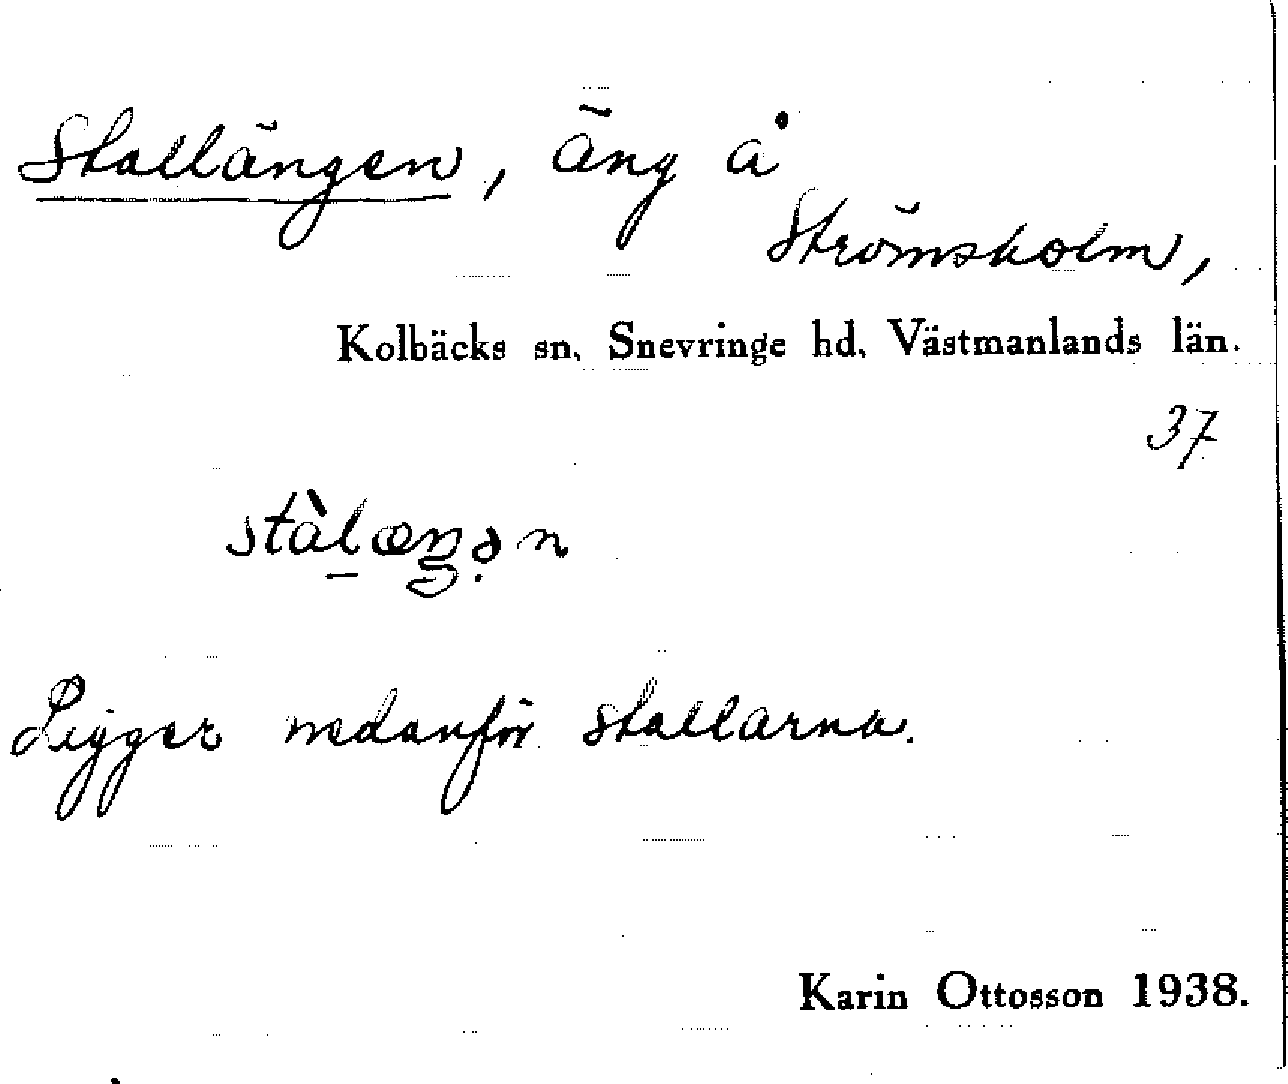 Stallängen, äng å
Strömsholm,
Kolbäcks sn, Snevringe hd, Västmanlands län.
37
stàl̠æŋə̣n
Ligger nedanför stallarna.
Karin Ottosson 1938.